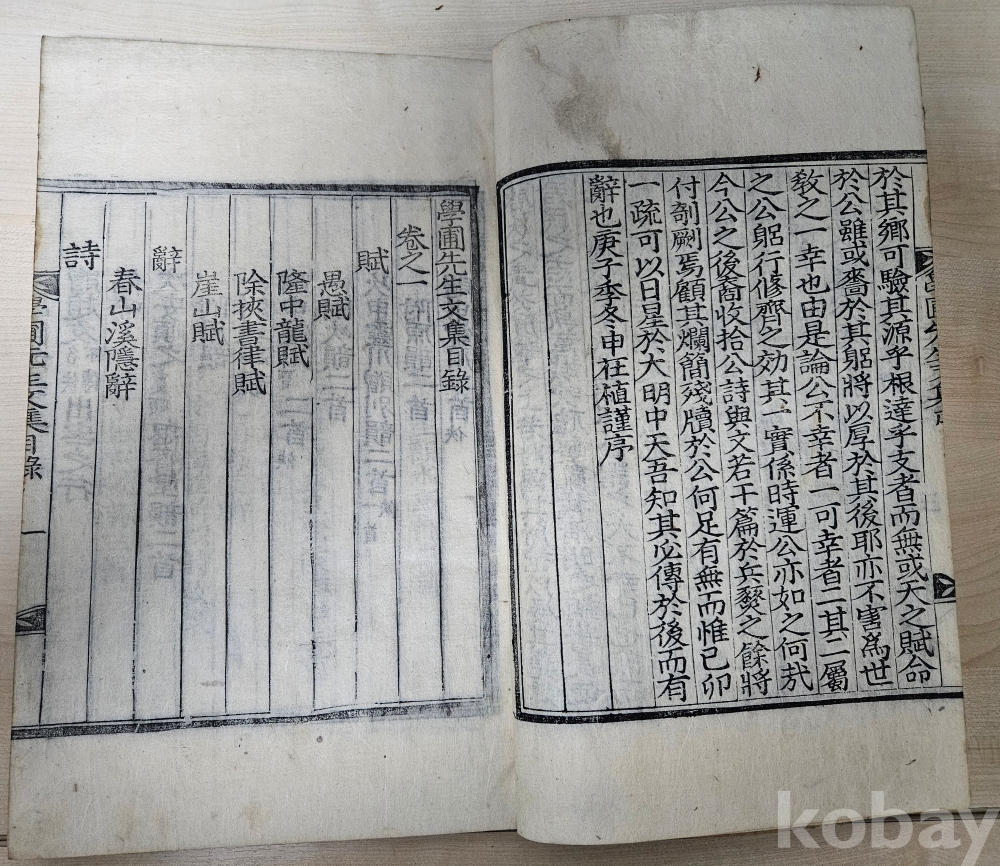 於其鄉可驗其源乎根達乎支者而無或天之賦命
於公雖或嗇於其躬將以厚於其後耶亦不害爲世
敎之一幸也由是論公不幸者一可幸者二其二屬
之公躬行修齊之効其一實係時運公亦如之何哉
今公之後裔收拾公詩與文若干篇於兵燹之餘將
付剞劂焉顧其爛簡殘牘於公何足有無而惟己卯
一疏可以日星於大明中天吾知其必傳於後而有
辭也庚子季冬申在植謹序
學圃先生文集目錄
卷之一
賦
愚賦
隆中龍賦
除挾書律賦
崖山賦
辭
春山溪隱辭
詩
學圃先生文集目錄 一
kobay